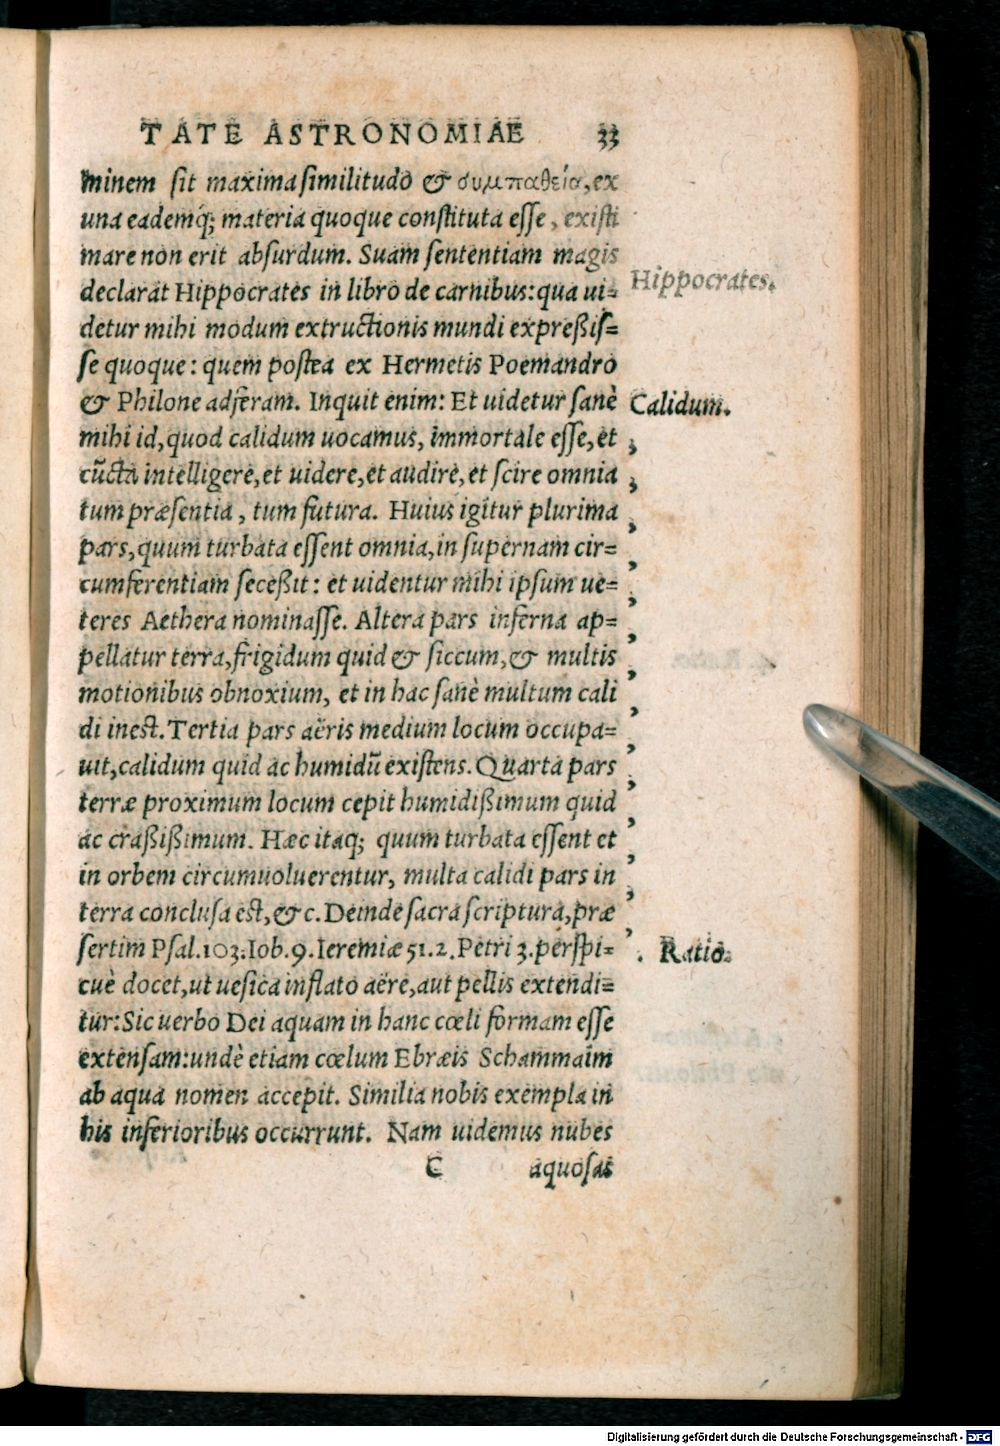 TATE ASTRONOMIAE 33
minem sit maxima similitudo & συμπαθεία, ex
una eademq; materia quoque constituta esse, existi
mare non erit absurdum. Suam sententiam magis
declarat Hippocrates in libro de carnibus: qua ui=
Hippocrates.
detur mihi modum extructionis mundi expreßis=
se quoque: quem postea ex Hermetis Poemandro
& Philone adferam. Inquit enim: Et uidetur sanè
Calidum.
mihi id, quod calidum uocamus, immortale esse, et
cūcta intelligere, et uidere, et audire, et scire omnia
tum præsentia, tum futura. Huius igitur plurima
pars, quum turbata essent omnia, in supernam cir=
cumferentiam seceßit: et uidentur mihi ipsum ue=
teres Aethera nominasse. Altera pars inferna ap=
pellatur terra, frigidum quid & siccum, & multis
motionibus obnoxium, et in hac sanè multum cali
di inest. Tertia pars aëris medium locum occupa=
uit, calidum quid ac humidū existens. Quarta pars
terræ proximum locum cepit humidißimum quid
ac craßißimum. Hæc itaq; quum turbata essent et
in orbem circumuoluerentur, multa calidi pars in
terra conclusa est, &c. Deinde sacra scriptura, præ
sertim Psal. 103. Iob. 9. Ieremiæ 51. 2. Petri 3. perspi=
Ratio.
cuè docet, ut uesica inflato aëre, aut pellis extendi=
tur: Sic uerbo Dei aquam in hanc cœli formam esse
extensam: undè etiam cœlum Ebræis Schammaim
ab aqua nomen accepit. Similia nobis exempla in
his inferioribus occurrunt. Nam uidemus nubes
C aquosas
Digitalisierung gefördert durch die Deutsche Forschungsgemeinschaft - DFG